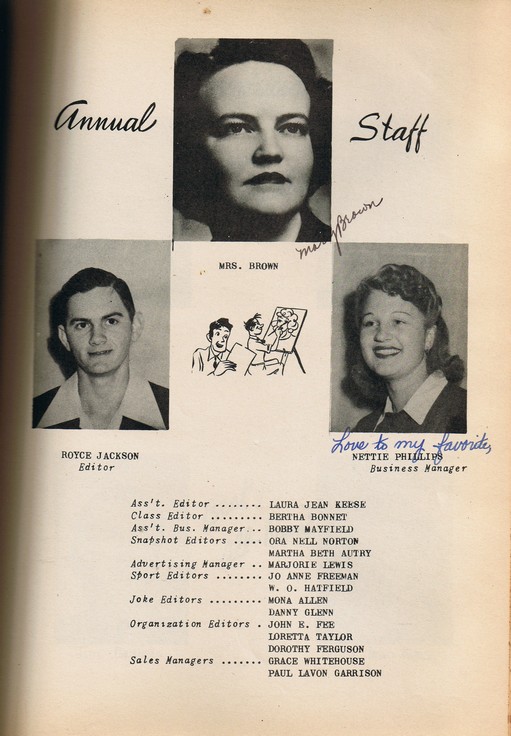 Annual Staff
Mary Brown
MRS. BROWN
Love to my favorite,
ROYCE JACKSON
Editor
NETTIE PHILLIPS
Business Manager
Ass't. Editor ........ LAURA JEAN KEESE
Class Editor ......... BERTHA BONNET
Ass't. Bus. Manager... BOBBY MAYFIELD
Snapshot Editors ..... ORA NELL NORTON
MARTHA BETH AUTRY
Advertising Manager .. MARJORIE LEWIS
Sport Editors ........ JO ANNE FREEMAN
W. O. HATFIELD
Joke Editors ......... MONA ALLEN
DANNY GLENN
Organization Editors . JOHN E. FEE
LORETTA TAYLOR
DOROTHY FERGUSON
Sales Managers ....... GRACE WHITEHOUSE
PAUL LAVON GARRISON